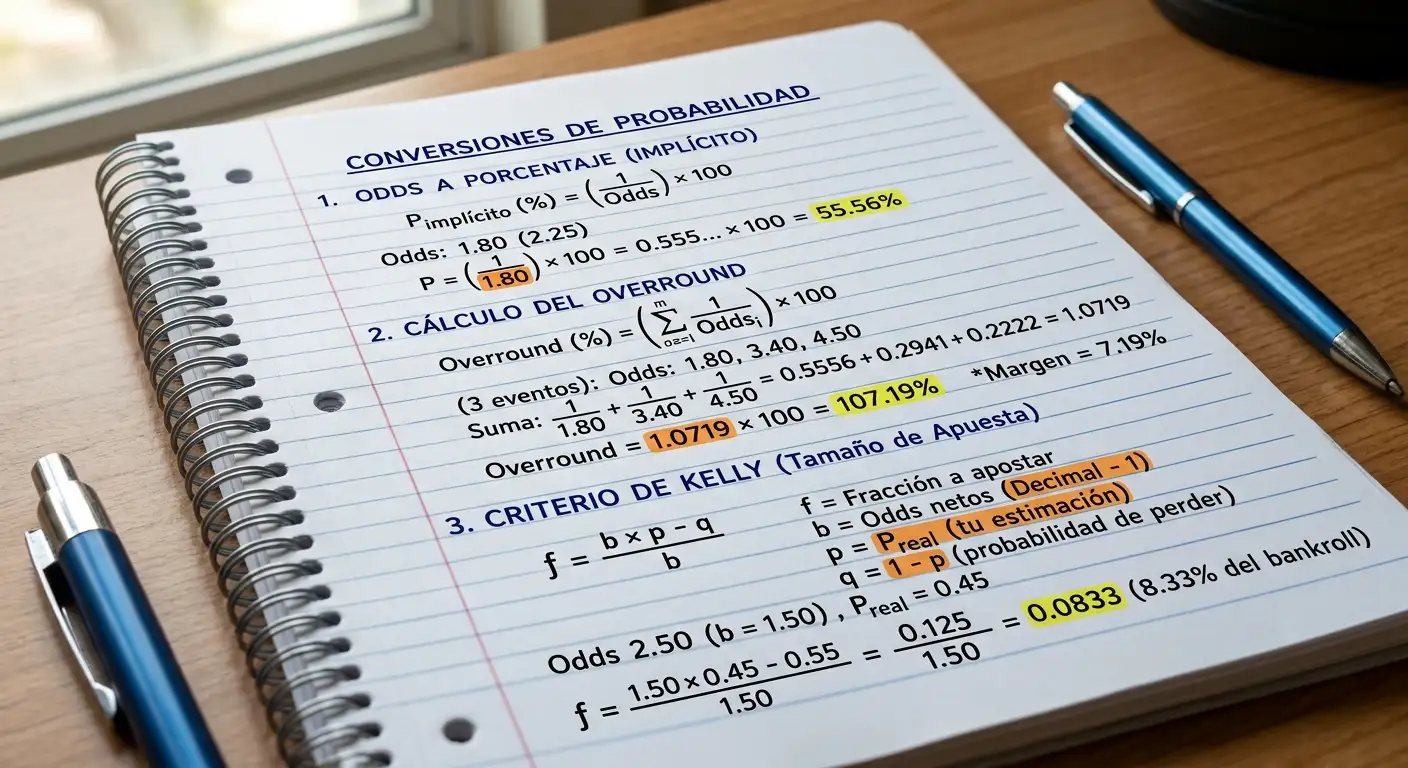 CONVERSIONES DE PROBABILIDAD
1. ODDS A PORCENTAJE (IMPLÍCITO)
P implícito (%) = (1/Odds) × 100
Odds: 1.80 (2.25)
P = (1/1.80) × 100 = 0.555... × 100 = 55.56%
2. CÁLCULO DEL OVERROUND
Overround (%) = (m∑o=1 1/Odds i) × 100
(3 eventos): Odds: 1.80, 3.40, 4.50
Suma: 1/1.80 + 1/3.40 + 1/4.50 = 0.5556 + 0.2941 + 0.2222 = 1.0719
Overround = 1.0719 × 100 = 107.19% *Margen = 7.19%
3. CRITERIO DE KELLY (Tamaño de Apuesta)
f = (b × p - q)/b
f = Fracción a apostar
b = Odds netos (Decimal - 1)
p = P real (tu estimación)
q = 1 - p (probabilidad de perder)
Odds 2.50 (b = 1.50), P real = 0.45
f = (1.50 × 0.45 - 0.55)/1.50 = 0.125/1.50 = 0.0833 (8.33% del bankroll)